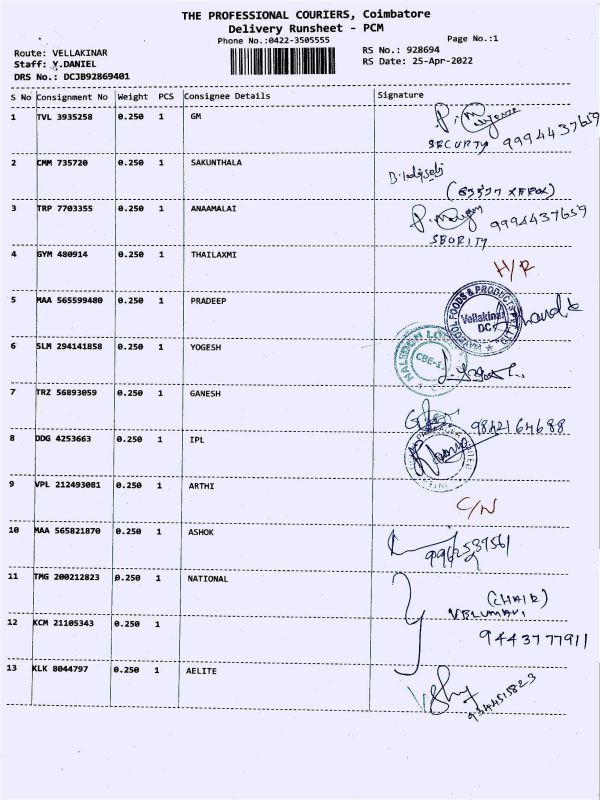 THE PROFESSIONAL COURIERS, Coimbatore
Delivery Runsheet - PCM
Phone No.:0422-3505555
Page No.:1
Route: VELLAKINAR
RS No.: 928694
Staff: Y.DANIEL
RS Date: 25-Apr-2022
DRS No.: DCJB92869401
S No Consignment No Weight PCS Consignee Details Signature
1 TVL 3935258 0.250 1 GM
SECURITY 9994437659
2 CMM 735720 0.250 1 SAKUNTHALA
3 TRP 7703355 0.250 1 ANAAMALAI
9994437659
SEQRITY
4 GYM 480914 0.250 1 THAILAXMI
H/R
5 MAA 565599480 0.250 1 PRADEEP
FOODS & PRODUCTS
Vellakinar
DC
6 SLM 294141858 0.250 1 YOGESH
CBE-1
7 TRZ 56893059 0.250 1 GANESH
9842164688
8 DDG 4253663 0.250 1 IPL
9 VPL 212493081 0.250 1 ARTHI
C/N
10 MAA 565821870 0.250 1 ASHOK
11 TMG 200212823 0.250 1 NATIONAL
(CHAIR)
VELUMAVI
12 KCM 21105343 0.250 1
9443777911
13 KLK 8044797 0.250 1 AELITE